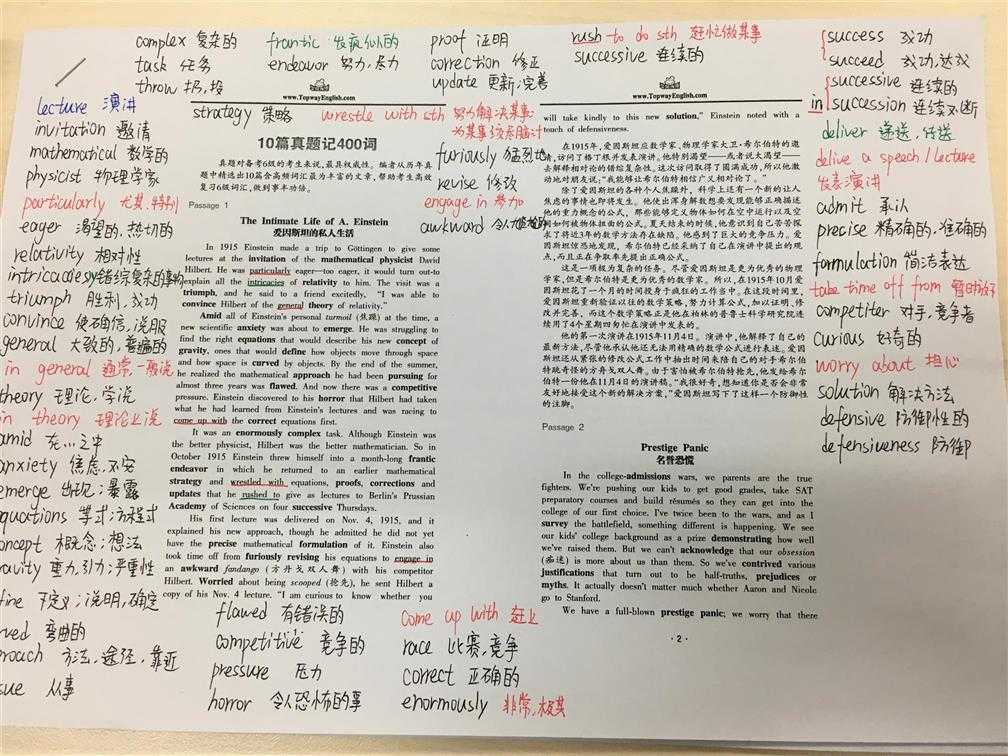 complex 复杂的
task 任务
throw 扔,投
frantic 发疯似的
endeavor 努力,尽力
proof 证明
correction 修正
update 更新,完善
rush to do sth 赶忙做某事
successive 连续的
success 成功
succeed 成功,达成
successive 连续的
in succession 连续不断
lecture 演讲
invitation 邀请
mathematical 数学的
physicist 物理学家
particularly 尤其,特别
eager 渴望的,热切的
relativity 相对性
triumph 胜利,成功
convince 使确信,说服
general 大致的,普遍的
in general 通常,一般说
theory 理论,学说
in theory 理论上说
amid 在...之中
anxiety 焦虑,不安
emerge 出现;暴露
equations 等式;方程式
concept 概念;想法
gravity 重力,引力;严重性
fine 下定义;说明,确定
rved 弯曲的
roach 方法,途径,靠近
sue 从事
strategy 策略
wrestle with sth 努力解决某事
为某事绞尽脑汁
furiously 猛烈地
revise 修改
engage in 参加
awkward 令人尴尬的
www.TopwayEnglish.com
10篇真题记400词
真题对备考6级的考生来说,最具权威性。编者从历年真
题中精选出10篇含高频词汇最为丰富的文章,帮助考生高效
复习6级词汇,做到事半功倍。
Passage 1
The Intimate Life of A. Einstein
爱因斯坦的私人生活
In 1915 Einstein made a trip to Göttingen to give some
lectures at the invitation of the mathematical physicist David
Hilbert. He was particularly eager—too eager, it would turn out—to
explain all the intricacies of relativity to him. The visit was a
triumph, and he said to a friend excitedly, "I was able to
convince Hilbert of the general theory of relativity."
Amid all of Einstein's personal turmoil (焦躁) at the time, a
new scientific anxiety was about to emerge. He was struggling to
find the right equations that would describe his new concept of
gravity, ones that would define how objects move through space
and how space is curved by objects. By the end of the summer,
he realized the mathematical approach he had been pursuing for
almost three years was flawed. And now there was a competitive
pressure. Einstein discovered to his horror that Hilbert had taken
what he had learned from Einstein's lectures and was racing to
come up with the correct equations first.
It was an enormously complex task. Although Einstein was
the better physicist, Hilbert was the better mathematician. So in
October 1915 Einstein threw himself into a month-long frantic
endeavor in which he returned to an earlier mathematical
strategy and wrestled with equations, proofs, corrections and
updates that he rushed to give as lectures to Berlin's Prussian
Academy of Sciences on four successive Thursdays.
His first lecture was delivered on Nov. 4, 1915, and it
explained his new approach, though he admitted he did not yet
have the precise mathematical formulation of it. Einstein also
took time off from furiously revising his equations to engage in
an awkward fandango (方丹戈双人舞) with his competitor
Hilbert. Worried about being scooped (抢先), he sent Hilbert a
copy of his Nov. 4 lecture. "I am curious to know whether you
www.TopwayEnglish.com
will take kindly to this new solution," Einstein noted with a
touch of defensiveness.
在1915年,爱因斯坦应数学家、物理学家大卫·希尔伯特的邀
请,访问了格丁根并发表演讲。他特别渴望——或者说太渴望——
去解释相对论的错综复杂性。这次访问取得了圆满成功,所以他激
动地对朋友说:"我能够让希尔伯特相信广义相对论了。"
除了爱因斯坦的各种个人焦躁外,科学上还有一个新的让人
焦虑的事情也即将发生。他使出浑身解数想要发现能够正确描述
他的重力概念的公式,那些能够定义物体如何在空中运行以及空
间如何被物体扭曲的公式。夏天结束的时候,他意识到自己苦苦探
求了将近3年的数学方法存在缺陷。他感到了巨大的竞争压力。爱
因斯坦惊恐地发现,希尔伯特已经采纳了自己在演讲中提出的观
点,而且正在争取率先提出正确公式。
这是一项极为复杂的任务。尽管爱因斯坦是更为优秀的物理
学家,但是希尔伯特是更为优秀的数学家。所以,在1915年10月爱
因斯坦花了一个月的时间投身于疯狂的工作当中。在这段时间里,
爱因斯坦重新验证以往的数学策略,努力计算公式,加以证明、修
改并完善。而这个数学策略正是他在柏林的普鲁士科学研究院连
续用了4个星期四匆忙在演讲中发表的。
他的第一次演讲在1915年11月4日。演讲中,他解释了自己的
最新方法,尽管他承认他还无法用精确的数学公式进行表述。爱因
斯坦还从紧张的修改公式工作中抽出时间来陪自己的对手希尔伯
特跳奇怪的方丹戈双人舞。由于害怕被希尔伯特抢先,他发给希尔
伯特一份他在11月4日的演讲稿。"我很好奇,想知道你是否会非常
友好地接受这个新的解决方案,"爱因斯坦写下了这样一个防御性
的注脚。
Passage 2
Prestige Panic
名誉恐慌
In the college-admissions wars, we parents are the true
fighters. We're pushing our kids to get good grades, take SAT
preparatory courses and build résumés so they can get into the
college of our first choice. I've twice been to the wars, and as I
survey the battlefield, something different is happening. We see
our kids' college background as a prize demonstrating how well
we've raised them. But we can't acknowledge that our obsession
(痴迷) is more about us than them. So we've contrived various
justifications that turn out to be half-truths, prejudices or
myths. It actually doesn't matter much whether Aaron and Nicole
go to Stanford.
We have a full-blown prestige panic; we worry that there
·2·
deliver 递送,传送
delive a speech / lecture
发表演讲
admit 承认
precise 精确的,准确的
formulation 简洁表达
take time off from 暂时放下
competiter 对手,竞争者
curious 好奇的
worry about 担心
solution 解决方法
defensive 防御性的
defensiveness 防御
flawed 有错误的
competitive 竞争的
pressure 压力
horror 令人恐怖的事
come up with 赶上
race 比赛,竞争
correct 正确的
enormously 非常,极其